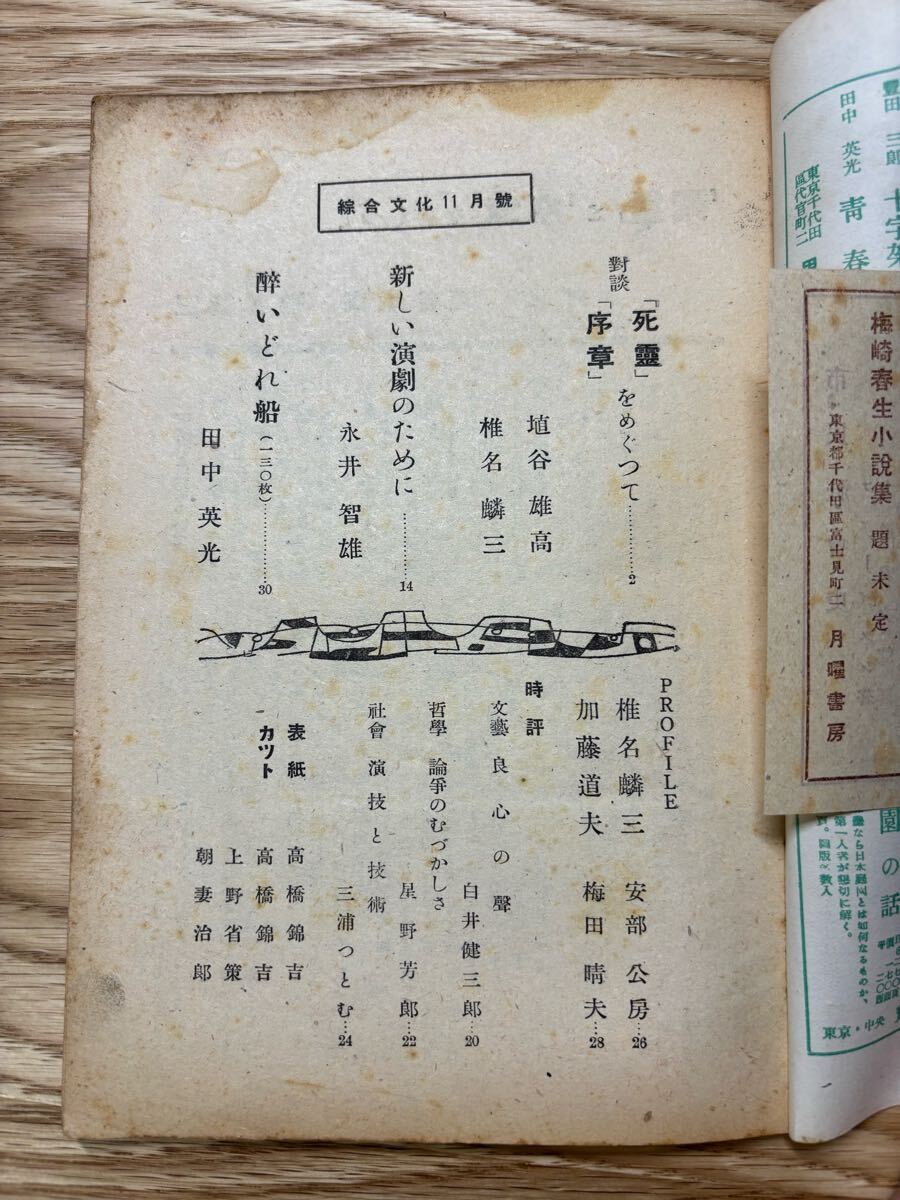 綜合文化11月號
對談
「死靈」
「序章」
をめぐつて……………2
埴谷雄高
椎名麟三
新しい演劇のために……………14
永井智雄
醉いどれ船(一三〇枚)……………30
田中英光
PROFILE
椎名麟三 安部公房…26
加藤道夫 梅田晴夫…28
時評
文藝 良心の聲
白井健三郎…20
哲學 論爭のむづかしさ
星野芳郎…22
社會 演技と技術
三浦つとむ…24
表紙 高橋錦吉
カット 高橋錦吉
上野省策
朝妻治郎
梅崎春生小說集 題未定
東京都千代田區富士見町二 月曜書房
豐田三郎 十字架
田中英光 靑春
東京千代田
區代官町二
園の話
第一人者が懇切に解く。
東京・中央